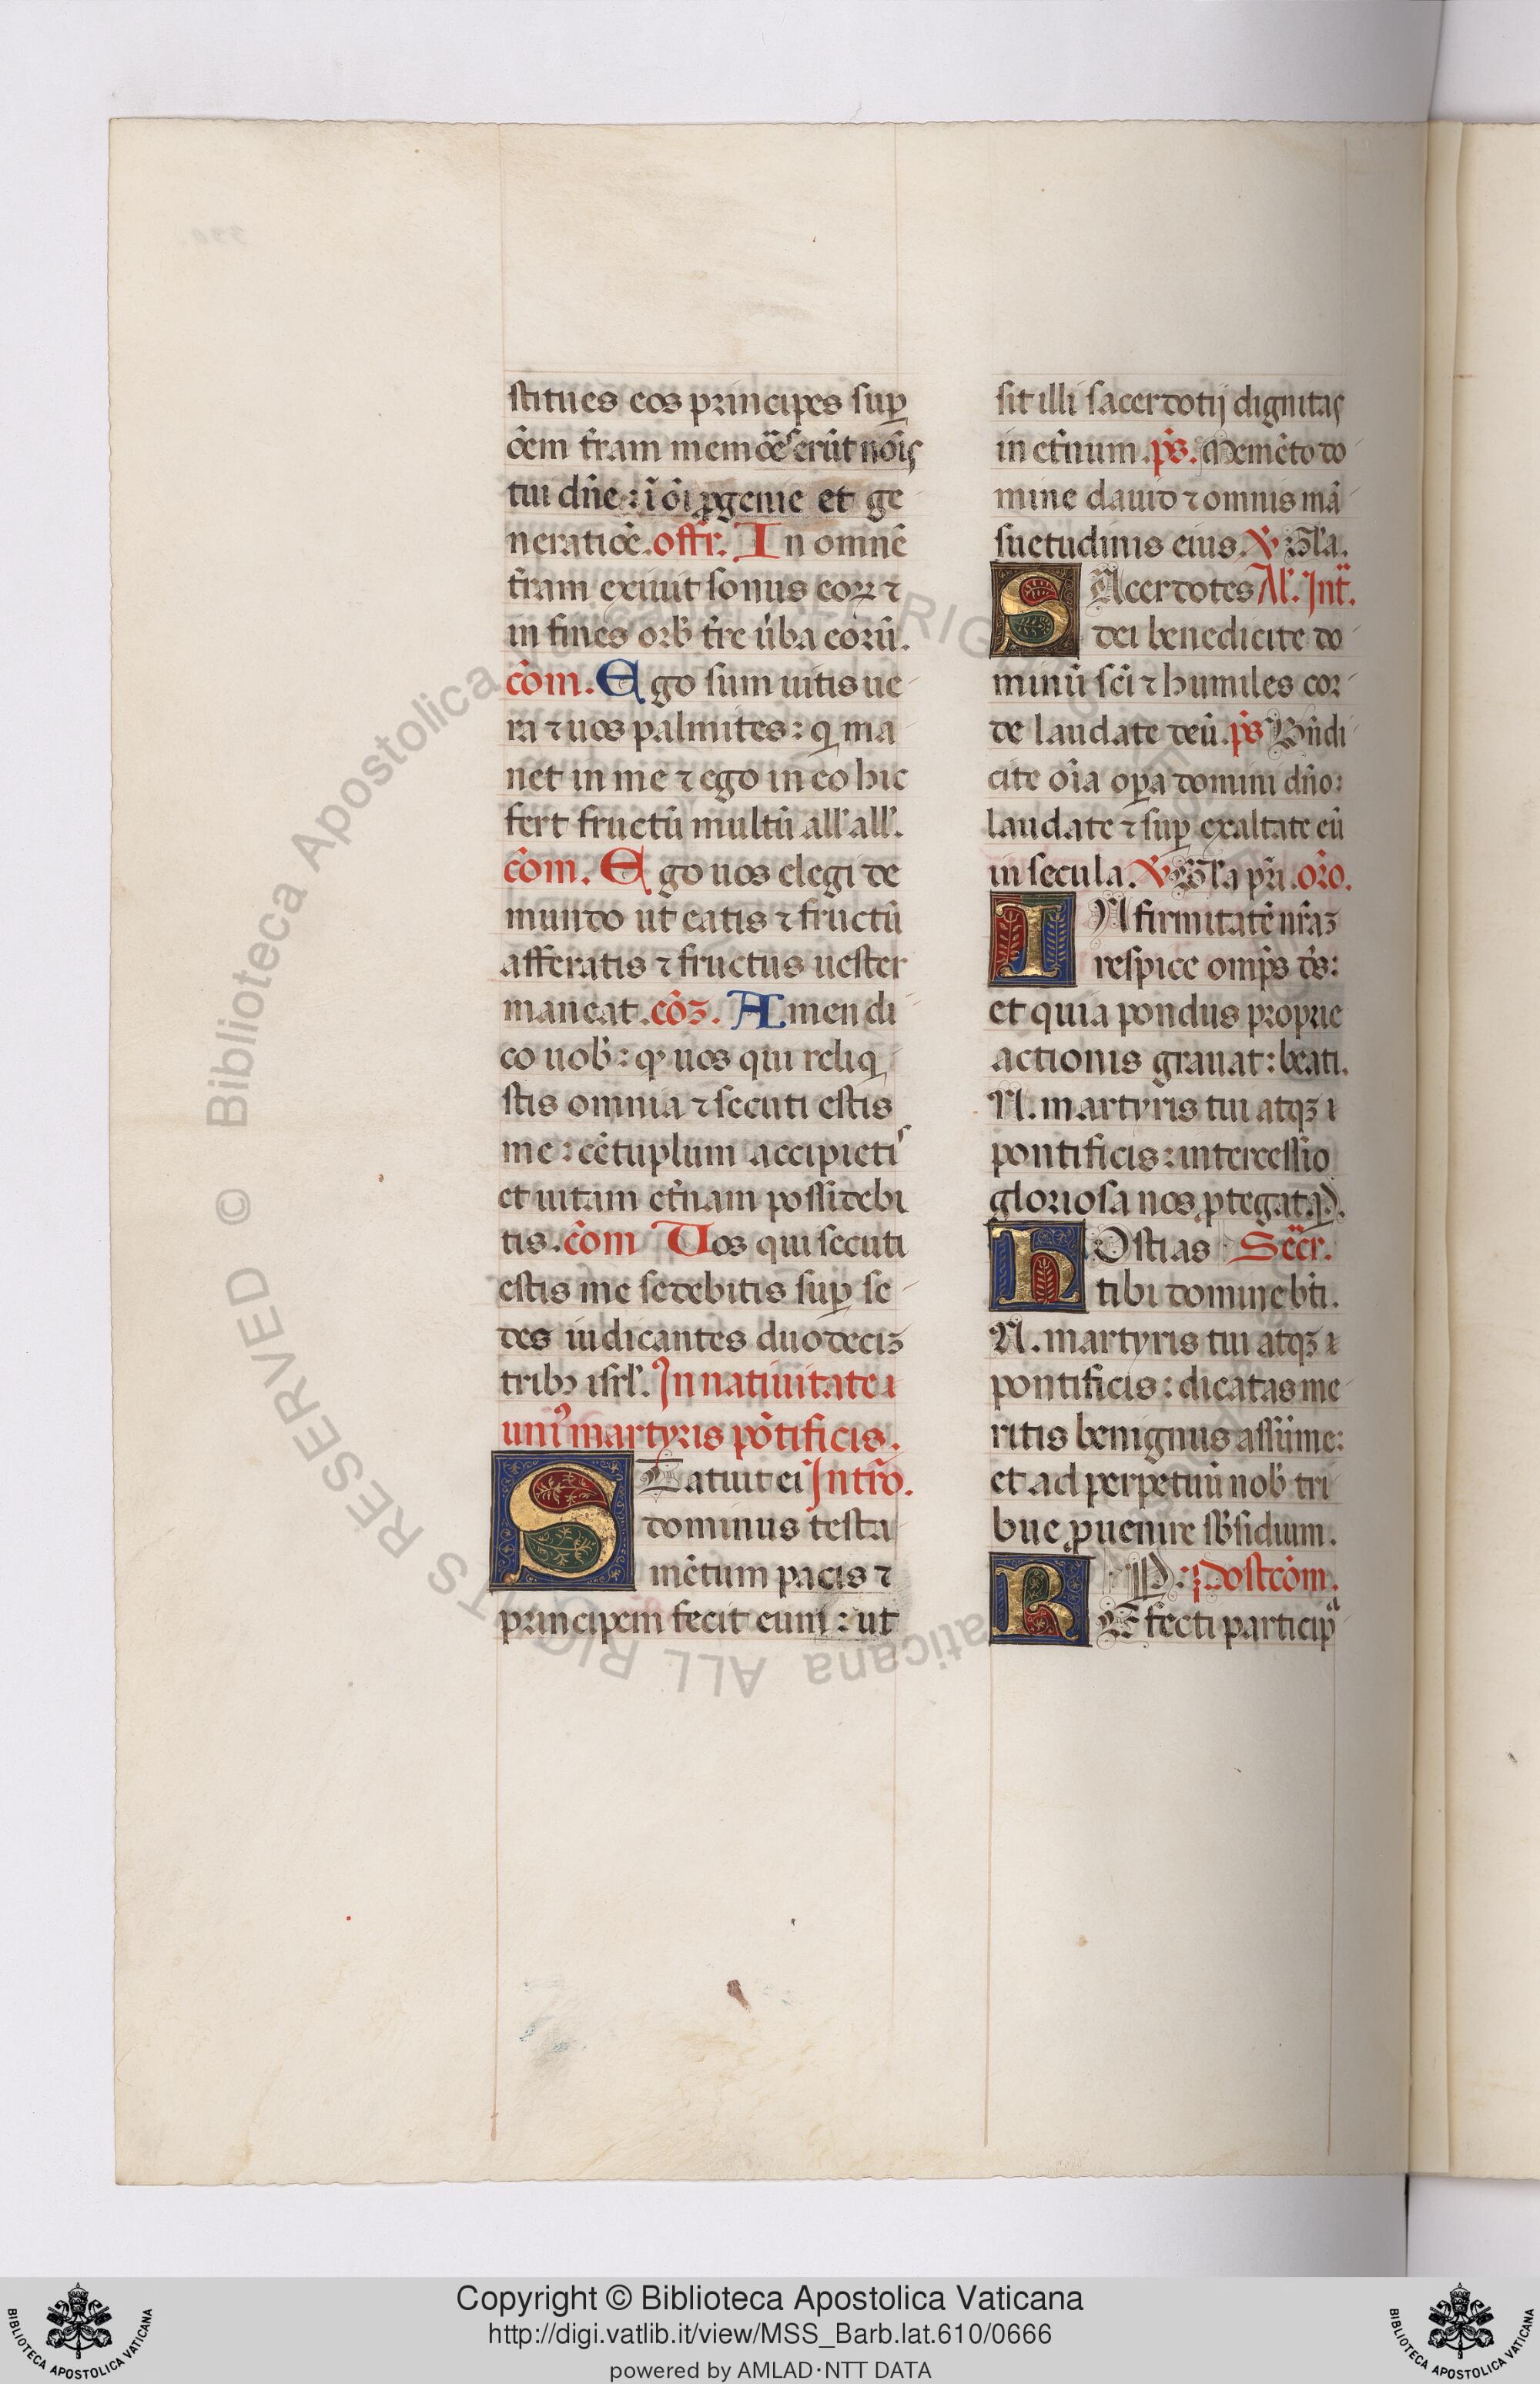 stitues eos principes suꝑ
oēm t̄ram memoꝛ̄es erūt noīs
tui dn̄e : ī oī ꝓgenie et ge
neratiōe . offr̄. In omnē
t̄ram exiuit sonus eoꝝ ⁊
in fines orb̄ t̄re ūba eorū.
cōm. Ego sum uitis ue
ra ⁊ uos palmites : q̄ ma
net in me ⁊ ego in eo hic
fert fructū multū all̄ all̄.
cōm. Ego uos elegi de
mundo ut eatis ⁊ fructū
afferatis ⁊ fructus uester
maneat . cōꝫ. Amen di
co uob̄ : ꝙ uos qui reliq̄
stis omnia ⁊ secuti estis
me : cētuplum accipietis
et uitam et̄nam possidebi
tis . cōm Uos qui secuti
estis me sedebitis suꝑ se
des iudicantes duodeciꝫ
tribꝫ isrl̄. In natiuitate i
uniꝰ martyris pōtificis.
STatuit ei Introͥ.
dominus testa
mētum pacis ⁊
principem fecit eum : ut
sit illi sacerdotij dignitas
in et̄num . p̄s. Memēto do
mine dauid ⁊ omnis mā
suetudinis eius. ℣ Gl̄a.
SAcerdotes Al̄. Int̄.
dei benedicite do
minū sc̄i ⁊ humiles cor
de laudate deū . p̄s Bn̄di
cite oīa oꝑa domini dn̄o :
laudate ⁊ suꝑ exaltate eū
in secula . ℣ Gl̄a pr̄i . oro.
IN firmitatē nr̄aꝫ
respice omp̄s ds̄ :
et quia pondus proprie
actionis grauat : beati.
N. martyris tui atqꝫ i
pontificis : intercessio
gloriosa nos ꝓtegat . P.
HOstias Secr̄.
tibi domine bt̄i.
N. martyris tui atqꝫ i
pontificis : dicatas me
ritis benignus assūme :
et ad perpetuū nob̄ tri
bue ꝓuenire sb̄sidium.
P : Postcōm.
REfecti particip̄a
Copyright © Biblioteca Apostolica Vaticana
http://digi.vatlib.it/view/MSS_Barb.lat.610/0666
powered by AMLAD·NTT DATA
BIBLIOTECA APOSTOLICA VATICANA
BIBLIOTECA APOSTOLICA VATICANA